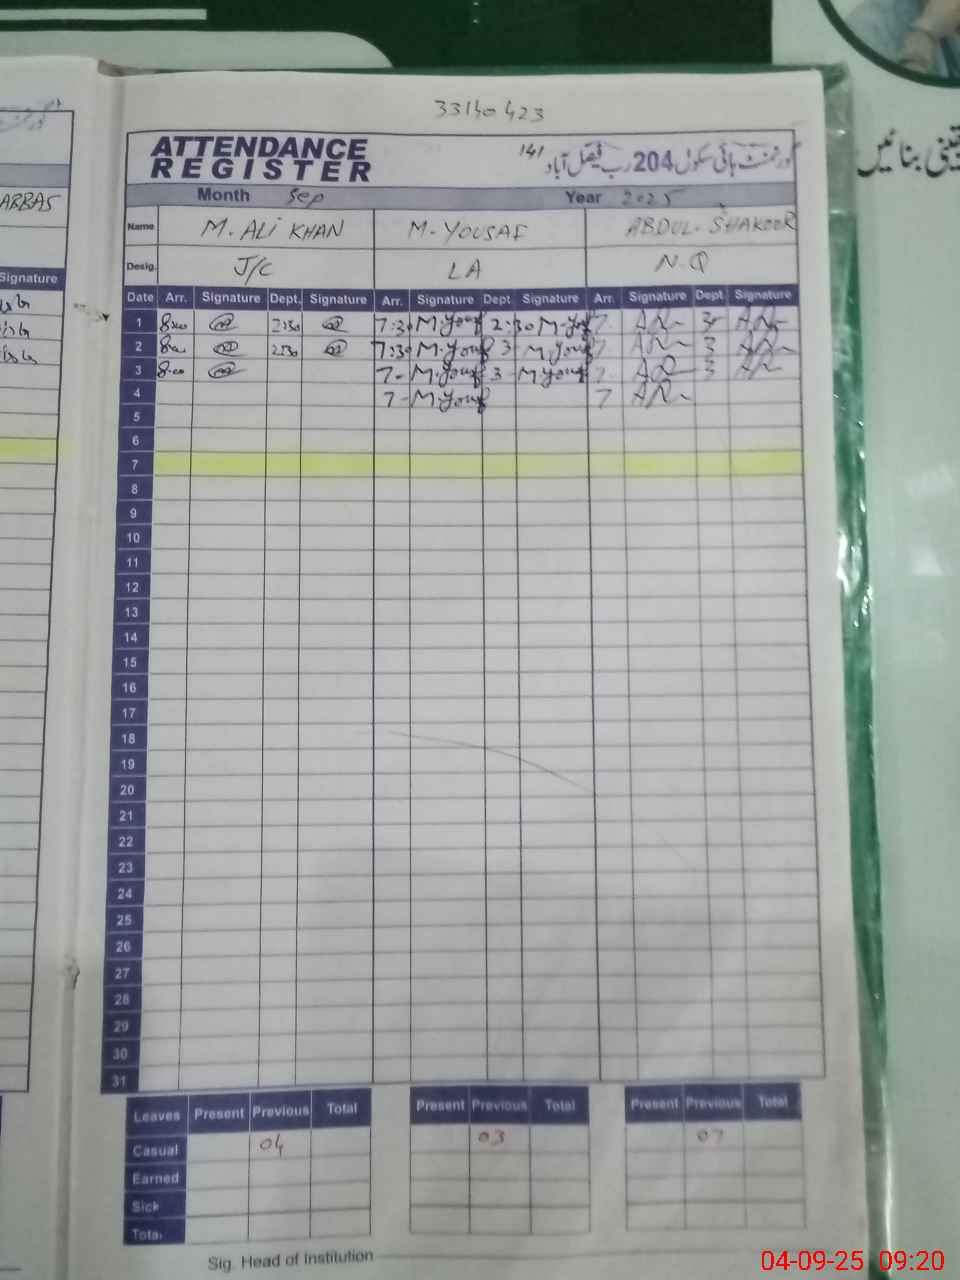 33140423
ATTENDANCE
REGISTER
گورنمنٹ ہائی سکول 204 رب فیصل آباد
141
Month Sep Year 2025
Name M. ALI KHAN M. YOUSAF ABDUL. SHAKOOR
Desig. J/C LA N.Q
Date Arr. Signature Dept. Signature Arr. Signature Dept. Signature Arr. Signature Dept. Signature
1 8:00 2:30 7:30 M.Yousf 2:30 7 3
2 8:00 2:30 7:30 M.Yousf 3 M.Yousf 7 3
3 8:00 7- M.Yousf 3 M.Yousf 7 3
4 7- M.Yousf 7
5
6
7
8
9
10
11
12
13
14
15
16
17
18
19
20
21
22
23
24
25
26
27
28
29
30
31
Leaves Present Previous Total Present Previous Total Present Previous Total
Casual 04 03 07
Earned
Sick
Total
Sig. Head of Institution
ABBAS
Signature
یقینی بنائیں
04-09-25 09:20